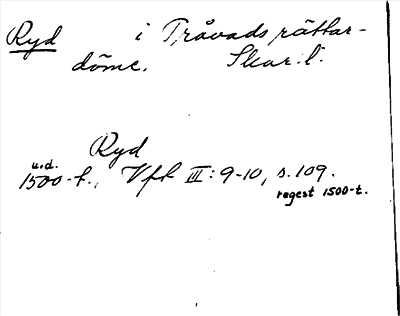 Ryd i Tråvads rättar-
döme. Skar. l.
Ryd
u.d.
1500-t., Vft III: 9-10, s. 109.
regest 1500-t.